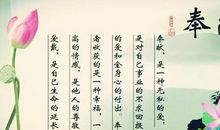 奉
奉献，是一种无私的爱，
是对自己事业的不求回报
的爱和全身心的付出。奉
者收获的是一种幸福，一
高的情感，是他人的尊敬
爱戴，是自己生命的延长